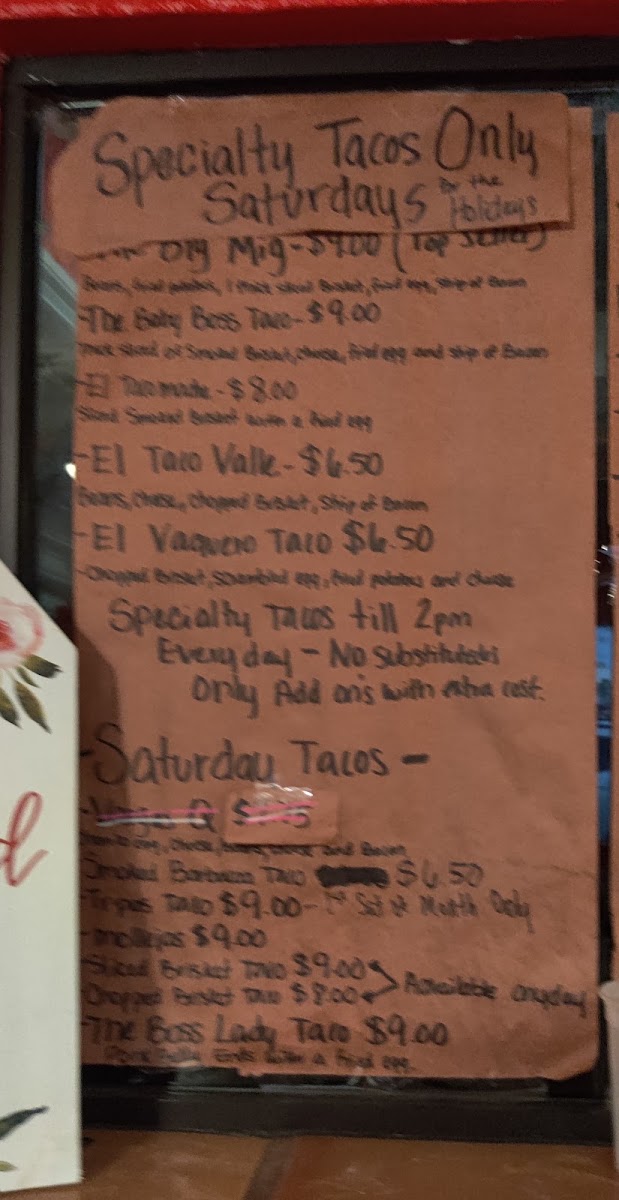 Specialty Tacos Only
Saturdays for the
Holidays
Big Mig - $9.00 (Top Seller)
Beans, fried potatoes, 1 thick sliced Brisket, fried egg, strip of Bacon
-The Baby Boss Taco - $9.00
Thick sliced of Smoked Brisket, cheese, fried egg and strip of Bacon
-El - $8.00
Sliced Smoked Brisket with a fried egg
-El Taco Valle - $6.50
Beans, Cheese, Chopped Brisket, Strip of Bacon
-El Vaquero Taco $6.50
-Chopped Brisket, Scrambled egg, fried potatoes and cheese
Specialty Tacos till 2pm
Everyday - No Substitutions
Only Add on's with extra cost.
-Saturday Tacos -
and Bacon
Smoked Barbacoa Taco $6.50
-Tripas Taco $9.00 - 1st Sat of Month Only
-mollejas $9.00
-Sliced Brisket Taco $9.00
-Chopped Brisket Taco $8.00 Available anyday
-The Boss Lady Taco $9.00
Pork Belly Ends with a fried egg.